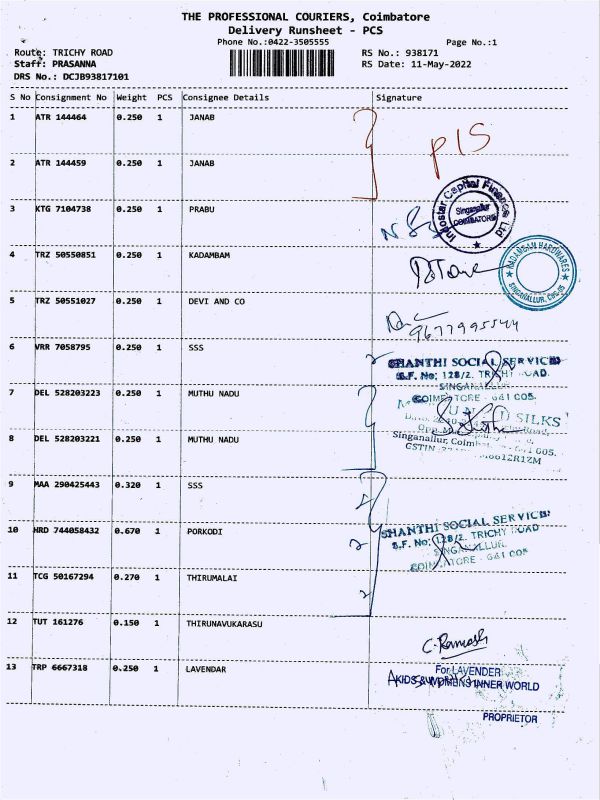 THE PROFESSIONAL COURIERS, Coimbatore
Delivery Runsheet - PCS
Phone No.:0422-3505555 Page No.:1
Route: TRICHY ROAD RS No.: 938171
Staff: PRASANNA RS Date: 11-May-2022
DRS No.: DCJB93817101
S No Consignment No Weight PCS Consignee Details Signature
1 ATR 144464 0.250 1 JANAB
2 ATR 144459 0.250 1 JANAB
3 KTG 7104738 0.250 1 PRABU
Indostar Capital Finance Ltd
Singanallur
COIMBATORE
4 TRZ 50550851 0.250 1 KADAMBAM
KADAMBAM HARDWARES
SINGANALLUR, CBE-05
5 TRZ 50551027 0.250 1 DEVI AND CO
9677995544
6 VRR 7058795 0.250 1 SSS
SHANTHI SOCIAL SERVICES
S.F. No: 128/2. TRICHY ROAD
SINGANALLUR
COIMBATORE - 641 005.
7 DEL 528203223 0.250 1 MUTHU NADU
SILKS
Road,
8 DEL 528203221 0.250 1 MUTHU NADU
Singanallur, 005.
GSTIN
9 MAA 290425443 0.320 1 SSS
SHANTHI SOCIAL SERVICES
S.F. No: 128/2. TRICHY ROAD
SINGANALLUR.
COIMBATORE - 641 005
10 HRD 744058432 0.670 1 PORKODI
11 TCG 50167294 0.270 1 THIRUMALAI
12 TUT 161276 0.150 1 THIRUNAVUKARASU
C. Ramesh
13 TRP 6667318 0.250 1 LAVENDAR
For LAVENDER
KIDS & WOMENS INNER WORLD
PROPRIETOR